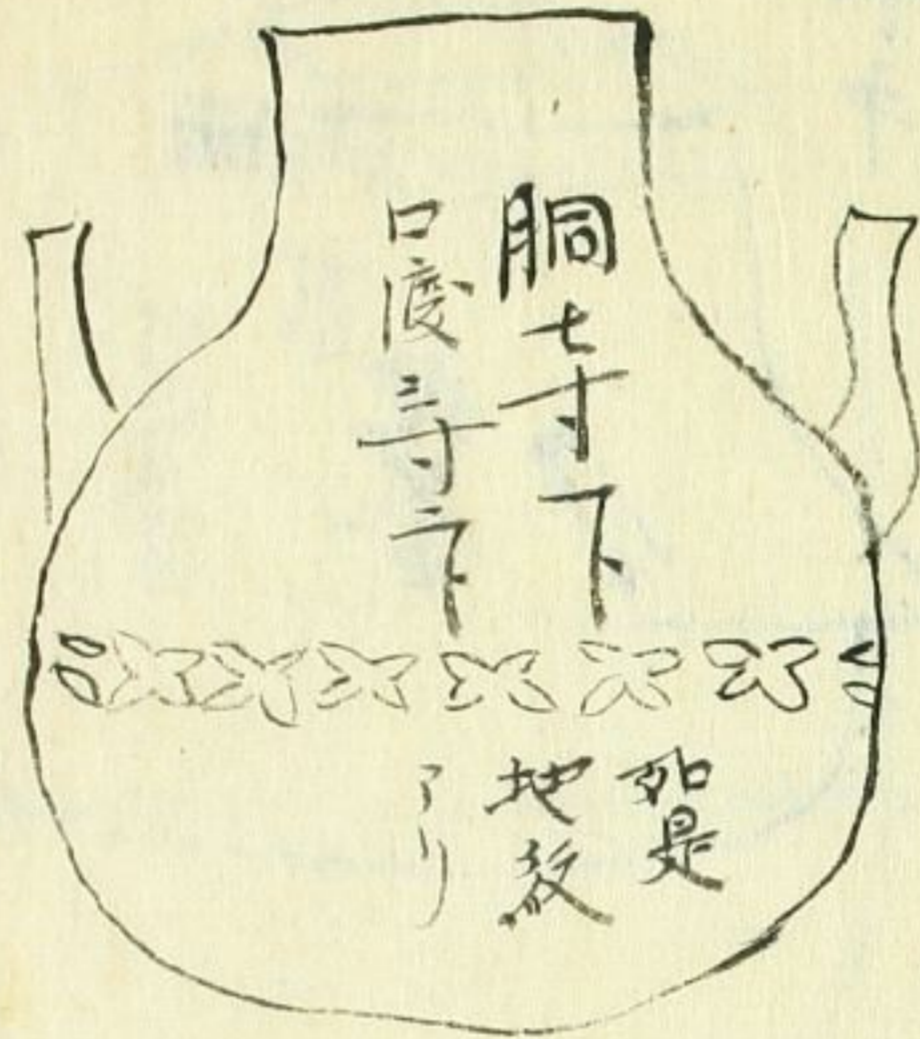 胴七寸一卜
口渡三寸二卜
如是
地紋
アリ